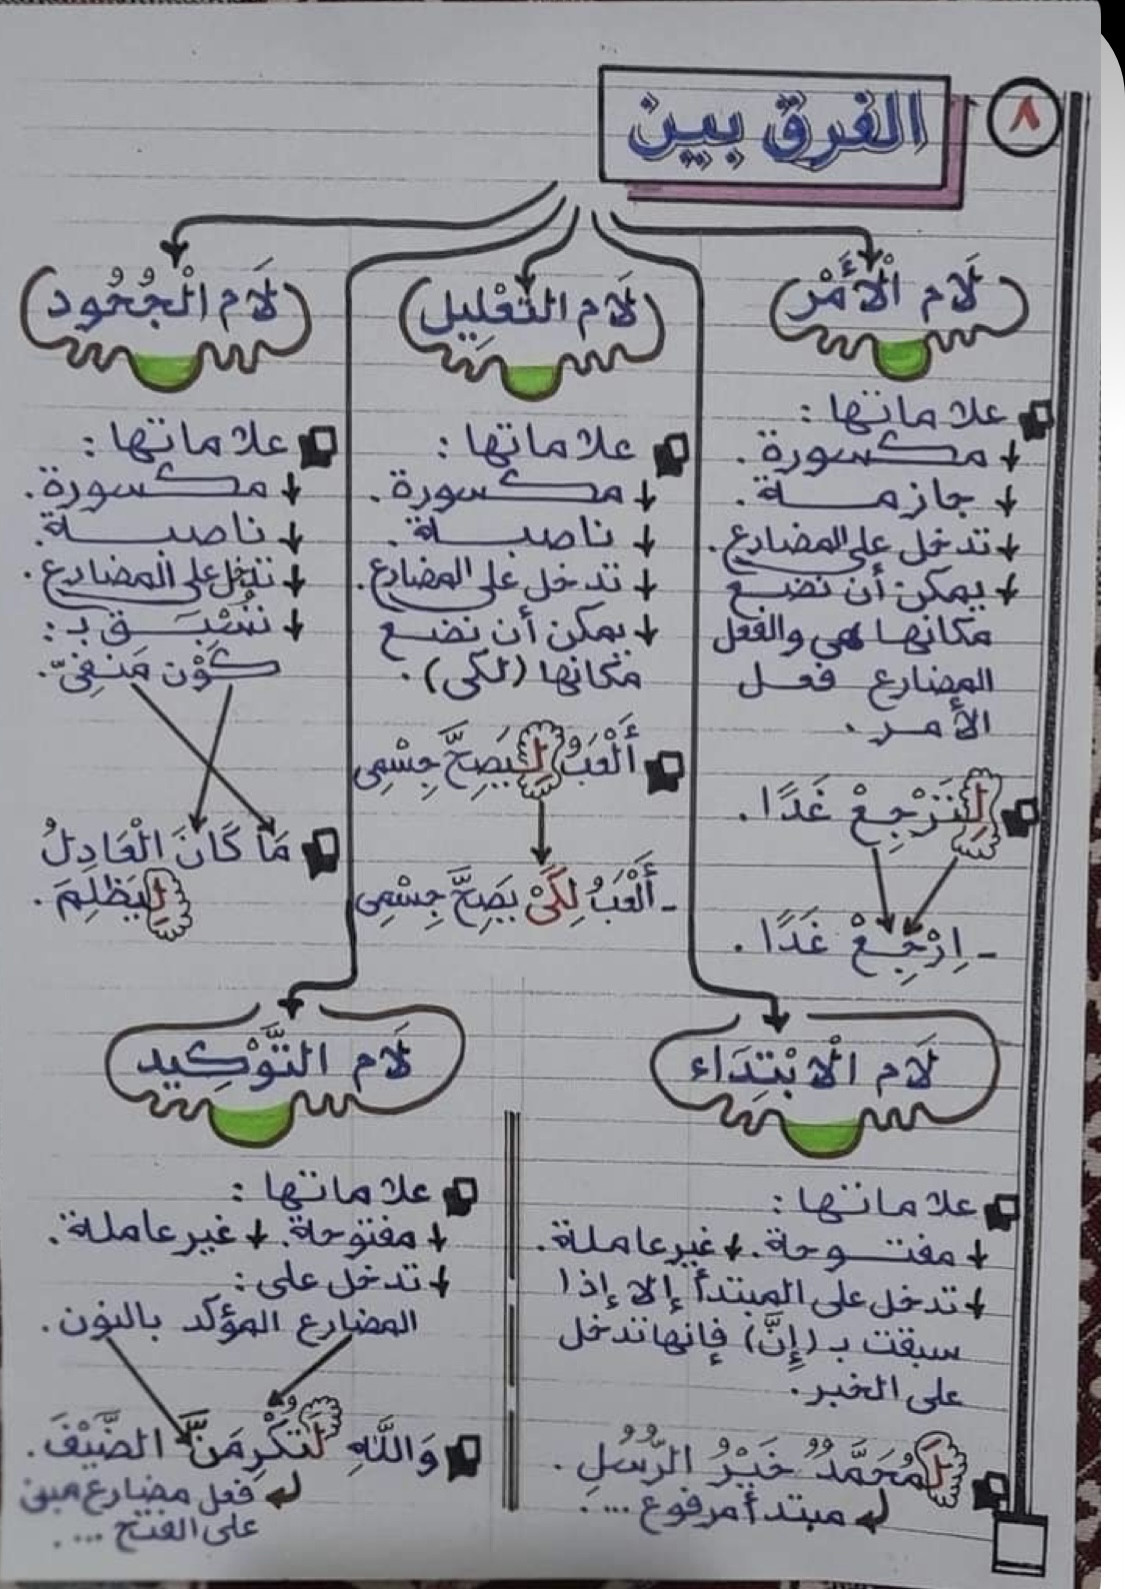 ٨
الفرق بين
لَام الْأَمْر
علاماتها :
مكسورة .
جازمة .
تدخل على المضارع .
يمكن أن نضع
مكانها هي والفعل
المضارع فعل
الأمر .
لِتَرْجِعْ غَدًا .
- اِرْجِعْ غَدًا .
لَام التَّعْلِيل
علاماتها :
مكسورة .
ناصبة .
تدخل على المضارع .
يمكن أن نضع
مكانها (لكى) .
أَلْعَبُ لِيَصِحَّ جِسْمِى
- أَلْعَبُ لِكَىْ يَصِحَّ جِسْمِى
لَام الْجُحُود
علاماتها :
مكسورة .
ناصبة .
تدخل على المضارع .
تُسْبَق بـ :
كَوْن مَنفِىّ .
مَا كَانَ الْعَادِلُ
لِيَظْلِمَ .
لَام الْابْتِدَاء
علاماتها :
مفتوحة . غير عاملة .
تدخل على المبتدأ إلا إذا
سبقت بـ (إِنَّ) فإنها تدخل
على الخبر .
لَمُحَمَّدٌ خَيْرُ الرُّسُلِ .
مبتدأ مرفوع ....
لَام التَّوْكِيد
علاماتها :
مفتوحة . غير عاملة .
تدخل على :
المضارع المؤكد بالنون .
وَاللَّهِ لَتُكْرِمَنَّ الضَّيْفَ .
فعل مضارع مبنى
على الفتح ....